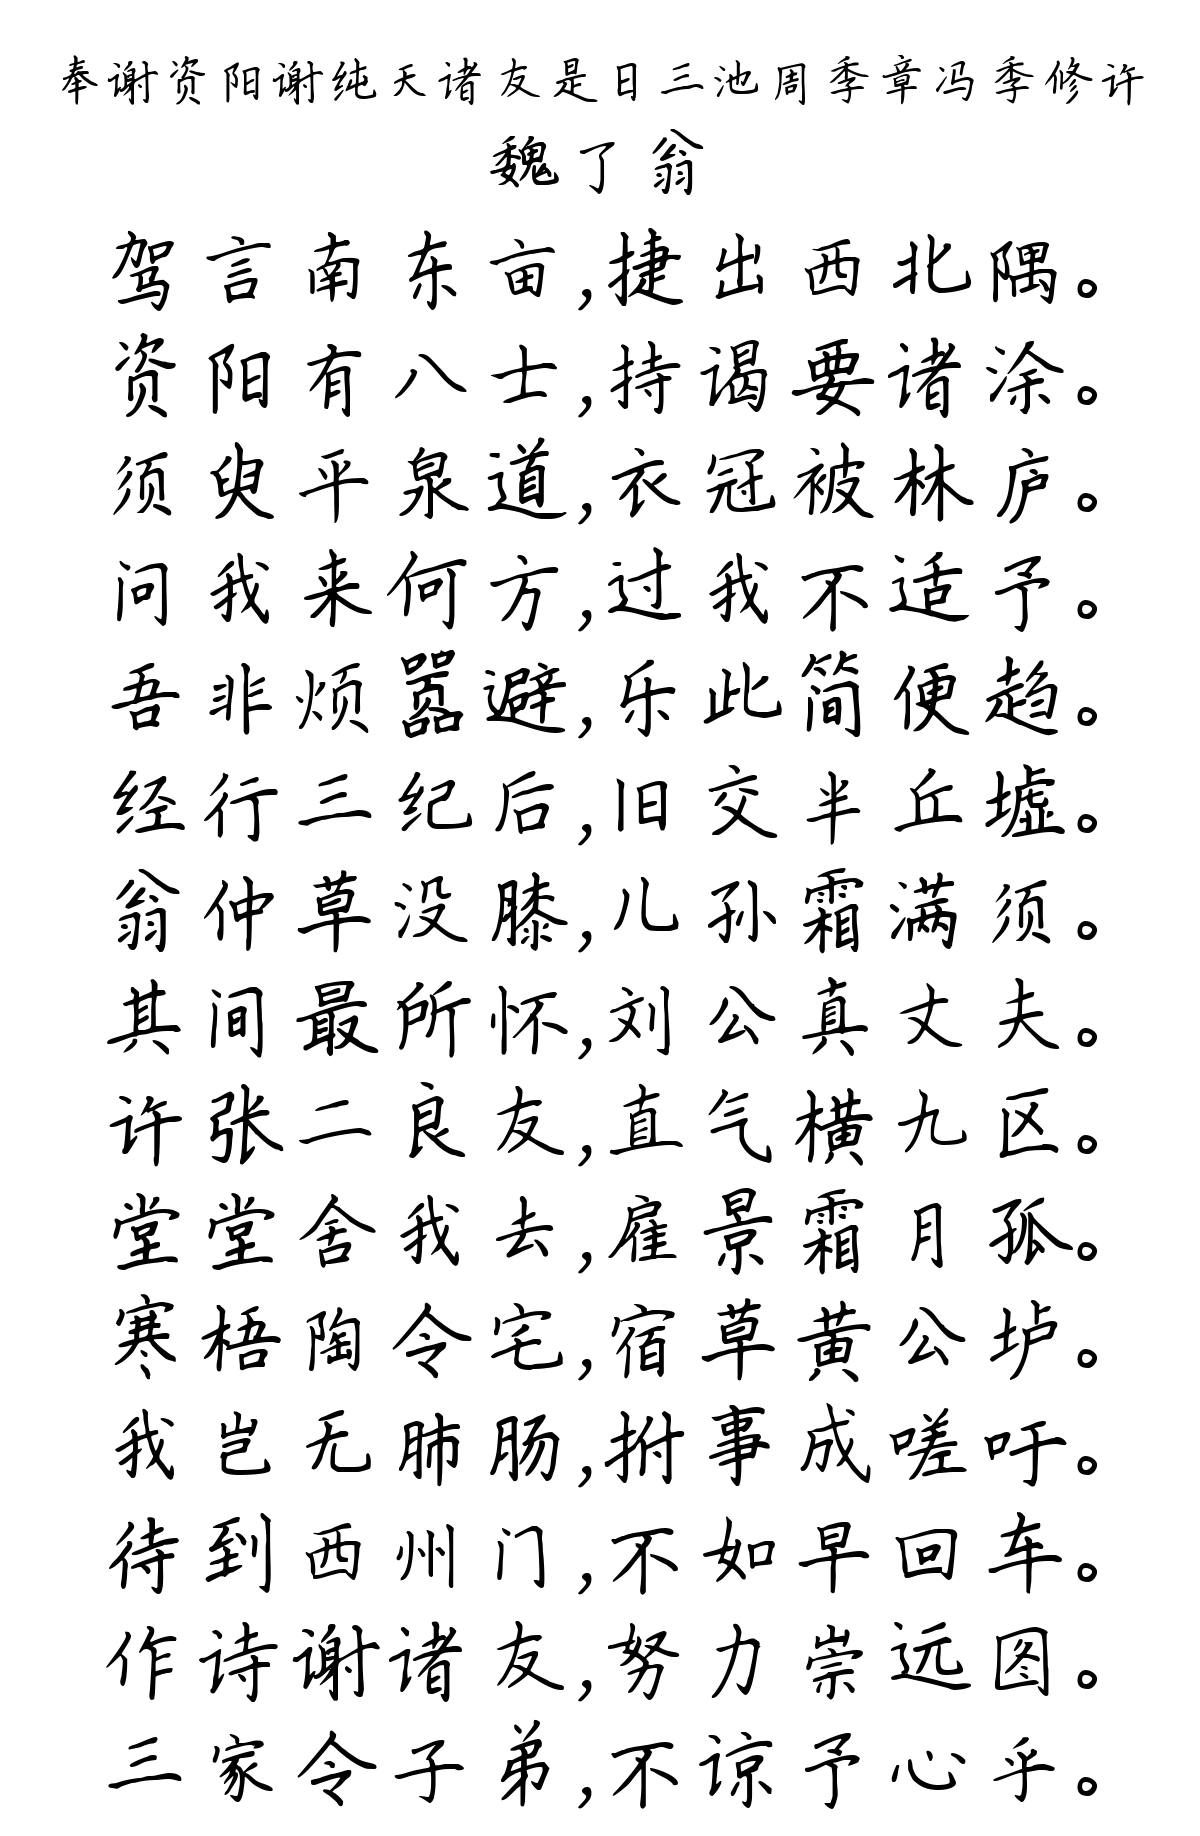 奉谢资阳谢纯天诸友是日三池周季章冯季修许
魏了翁
驾言南东亩,捷出西北隅。
资阳有八士,持谒要诸涂。
须臾平泉道,衣冠被林庐。
问我来何方,过我不适予。
吾非烦嚣避,乐此简便趋。
经行三纪后,旧交半丘墟。
翁仲草没膝,儿孙霜满须。
其间最所怀,刘公真丈夫。
许张二良友,直气横九区。
堂堂舍我去,雇景霜月孤。
寒梧陶令宅,宿草黄公垆。
我岂无肺肠,拊事成嗟吁。
待到西州门,不如早回车。
作诗谢诸友,努力崇远图。
三家令子弟,不谅予心乎。